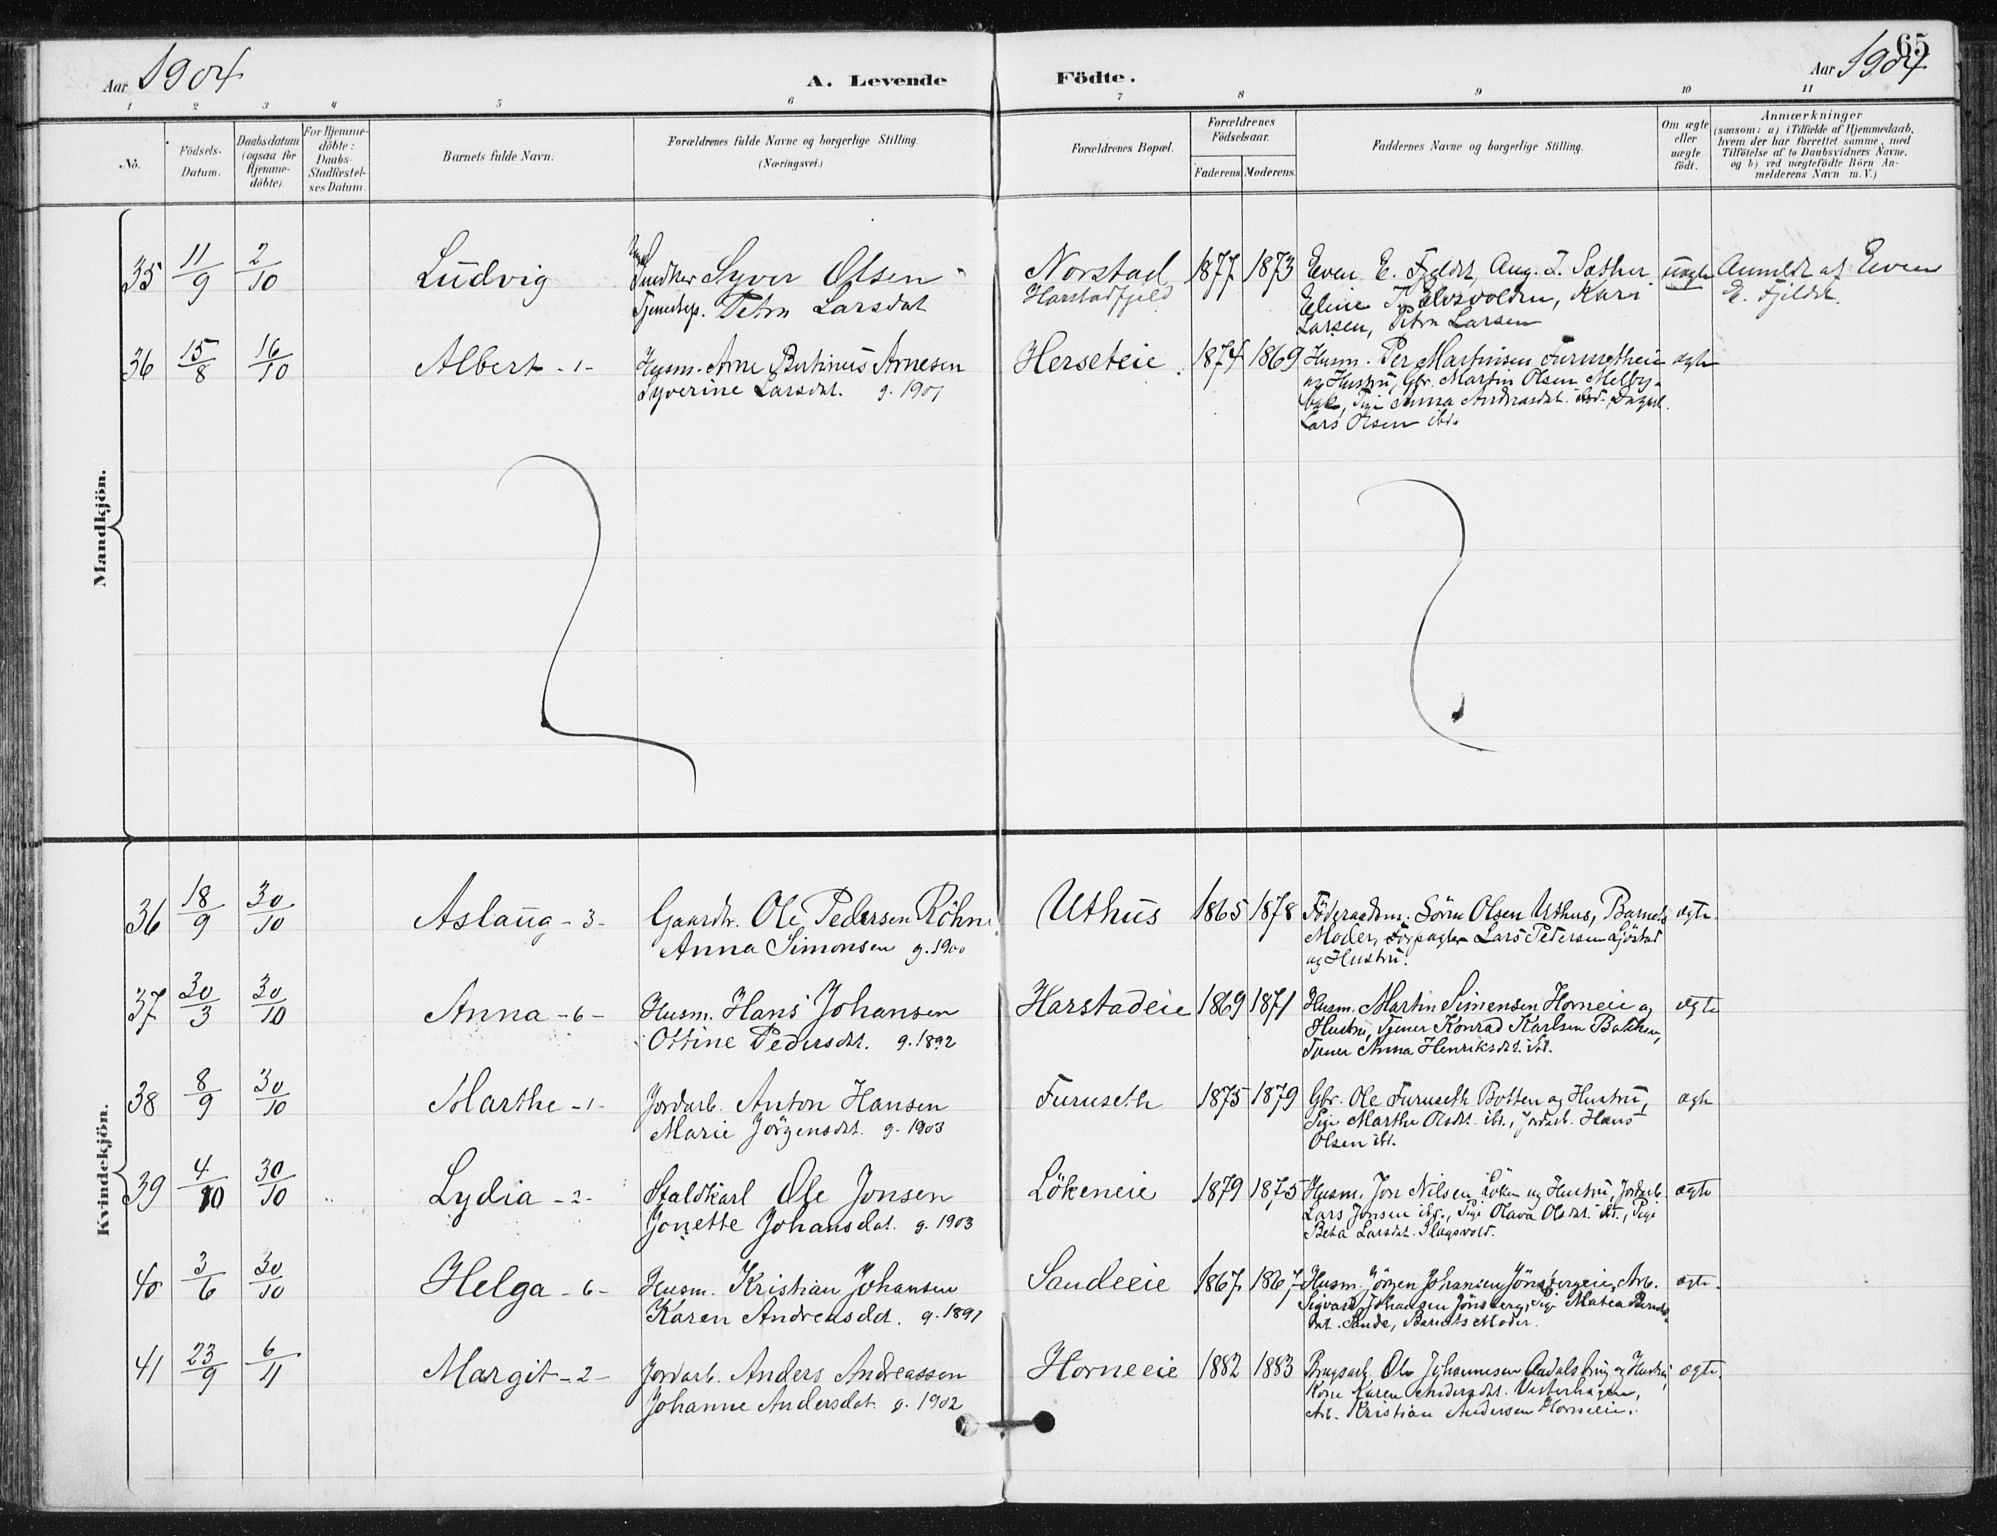 65
Aar 1904
A. Levende Födte.
Aar 1904
1 2 3 4 5 6 7 8 9 10 11
No.
Födsels-
Datum.
Daabsdatum
(ogsaa for
Hjemme-
döbte)
For Hjemme-
döbte:
Daabs-
Stadfæstel-
ses Datum
Barnets fulde Navn.
Forældrenes fulde Navne og borgerlige Stilling.
(Næringsvei.)
Forældrenes Bopæl.
Forældrenes
Födselsaar.
Faderens Moderens.
Faddernes Navne og borgerlige Stilling.
Om ægte
eller
uægte
födt.
Anmærkninger
(saasom: a) i Tilfælde af Hjemmedaab,
hvem der har forrettet samme, med
Tilföielse af to Daabsvidners Navne,
og b) ved uægtefödte Börn An-
melderens Navn m. V.)
Mandkjön.
35 11/9 2/10 Ludvig
Snedker Syver Olsen
Petra Larsdat
Norstad
Harstadfjeld
1877 1873
Even E. Fjeldt, Aug. J. Sæther
Eline Elvsvolden, Kari
Larsen, Petra Larsen
uægte
Anmeldt af Even
E. Fjeldt.
36 15/8 16/10 Albert -1-
Husm. Arne Bertinius Arnesen
Syverine Larsdat. g. 1901
Herseteie
1874 1869
Husm. Per Martinsen
og Hustru, Gbr. Martin Olsen Melby-
bak, Pige Anna Andreasdat. ibd.
Lars Olsen ibd.
ægte
Kvindekjön.
36 18/9 30/10 Aslaug -3-
Gaardbr. Ole Pedersen Röhne
Anna Simonsen g. 1900
Uthus
1865 1878
Föderaadsm. Sören Olsen Uthus, Barnets
Moder, Forpagter Lars Pedersen
og Hustru.
ægte.
37 30/3 30/10 Anna -6-
Husm. Hans Johansen
Ottine Pedersdat. g. 1892
Harstadeie
1869 1871
Husm. Martin Simensen Horneie og
Hustru, Tjener Konrad Karlsen Bakken,
Tjener Anna Henriksdat. ibd.
ægte
38 8/9 30/10 Marthe -1-
Jordarb. Anton Hansen
Marie Jörgensdat. g. 1903
Furuseth
1875 1879
Gbr. Ole Furuseth Botten og Hustru,
Pige Marthe Olsdat. ibd., Jordarb. Hans
Olsen ibd.
ægte
39 4/10 30/10 Lydia -2-
Staldkarl Ole Jonsen
Jonette Johansdat. g. 1903
Lökeneie
1879 1875
Husm. Jon Nilsen Löken og Hustru, Jordarb.
Lars Jonsen ibd., Pige Olava Olsdat. ibd., Pige
Beta Larsdat. Slagsvold.
ægte
40 3/6 30/10 Helga -6-
Husm. Kristian Johansen
Karen Andreasdat. g. 1891
Sandeeie
1867 1867
Husm. Jörgen Johansen Jönsbergeie, Arb.
Sigvard Johansen Jönsberg, Pige Matea Bernts-
dat. Sande, Barnets Moder.
ægte.
41 23/9 6/11 Margit -2-
Jordarb. Anders Andreassen
Johanne Andersdat. g. 1902
Horneeie
1882 1883
Brugsarb. Ole Johannesen Aadalsbrug og Hustru,
Kone Karen Andersdat. Vesterhagen,
Arb. Kristian Andersen Horneeie.
ægte.